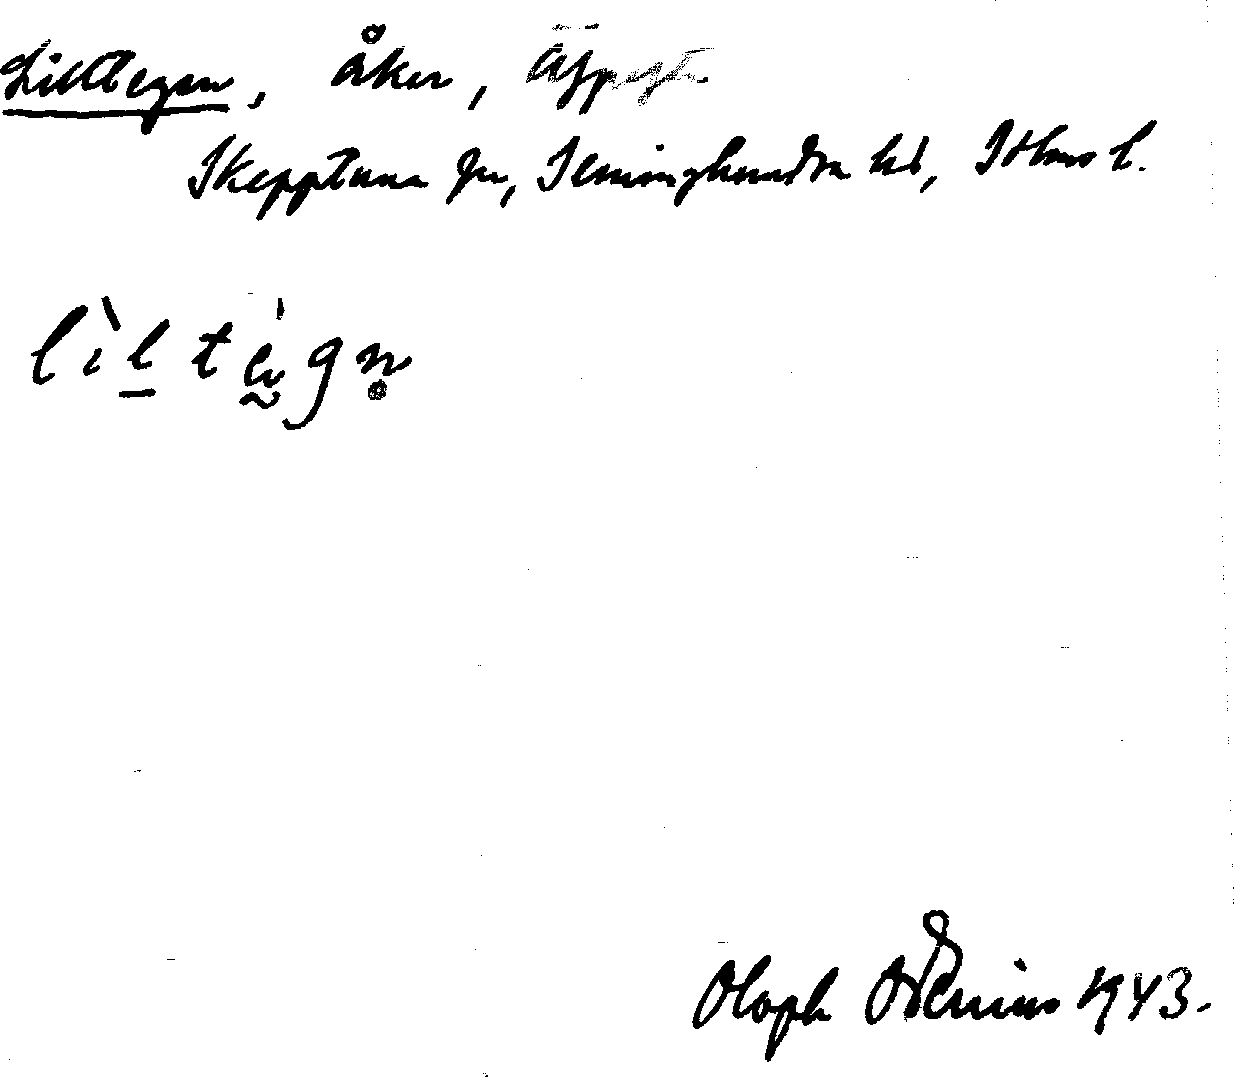 Lilltegen, åker,
Skepptuna sn, Seminghundra hd, Sthms l.
lìl̲tḛ̀gn̥
Oloph Odenius 1943.